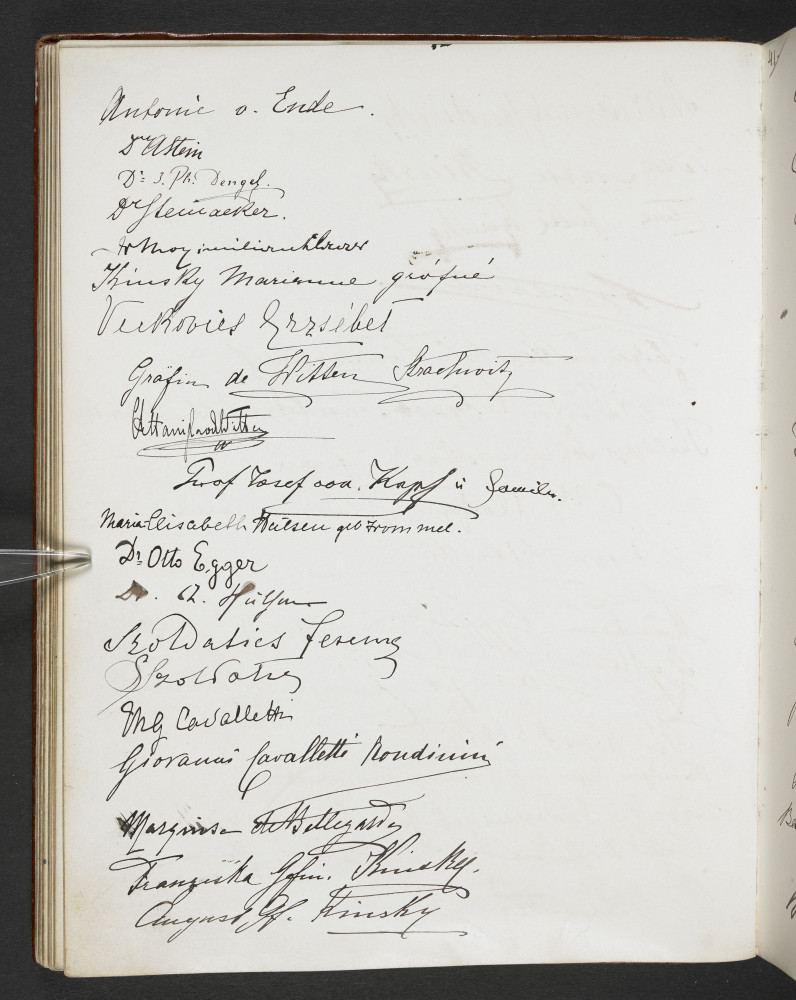 Antonie v. Ende.
Dr AStein
Dr. J. Ph. Dengel.
Dr Steinacker.
Kinsky Marianne grófné
Verkovics Erzsébet
Gräfin de Witten Strachwitz
Prof Josef von Kopf u Familie.
Maria Elisabeth Hülsen geb Frommel.
Dr. Otto Egger
Dr. Hülsen
Szoldatics Ferenc
Szoldatics
Cavalletti
Giovanni Cavalletti Rondinini
Marquise de Bellegarde
Franziska Gfin. Kinsky.
August Gf. Kinsky